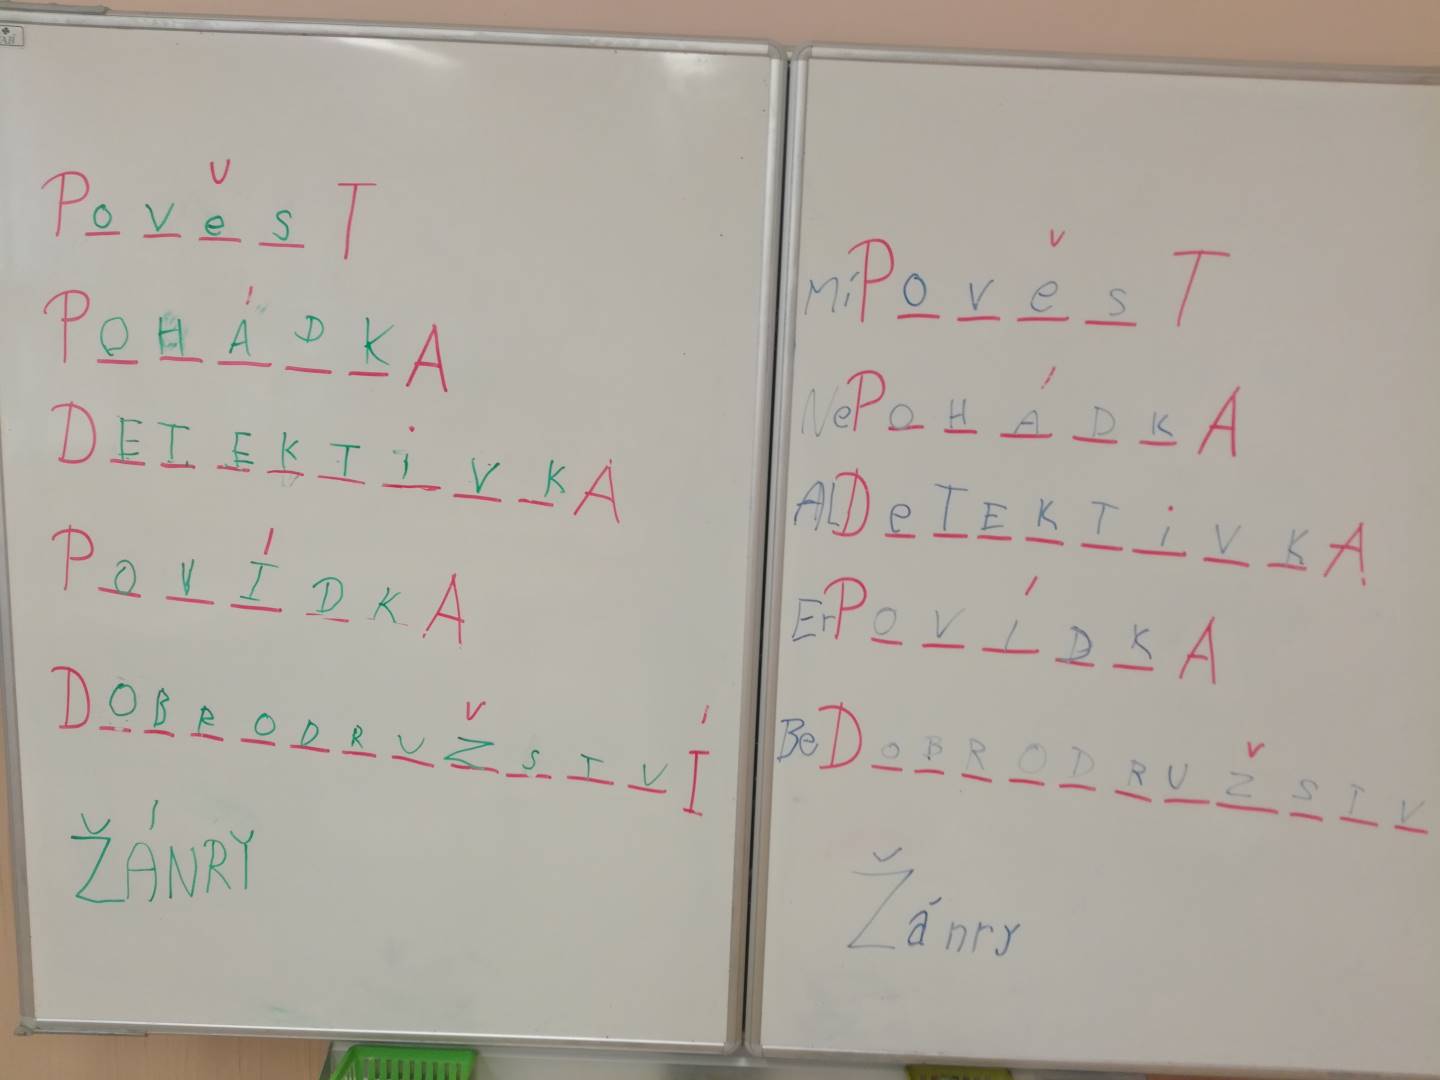 PověsT
POHÁDKA
DETEKTiVKA
POVÍDKA
DOBRODRUŽSTVÍ
ŽÁNRY
Mí PověsT
Ne POHÁDKA
AL DeTEKTiVKA
Er POVÍDKA
Be DoBRODRUŽSTV
Žánry